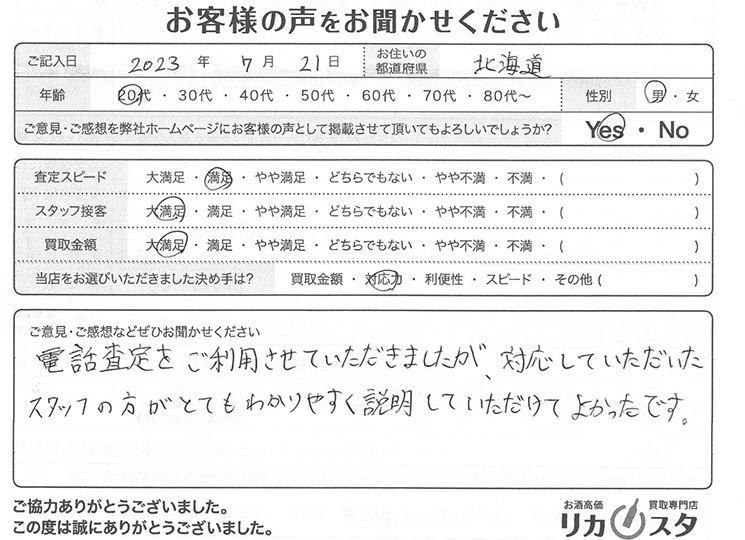 お客様の声をお聞かせください
ご記入日 2023 年 7 月 21 日 お住いの都道府県 北海道
年齢 20代 ・ 30代 ・ 40代 ・ 50代 ・ 60代 ・ 70代 ・ 80代〜 性別 男 ・ 女
ご意見・ご感想を弊社ホームページにお客様の声として掲載させて頂いてもよろしいでしょうか? Yes ・ No
査定スピード 大満足 ・ 満足 ・ やや満足 ・ どちらでもない ・ やや不満 ・ 不満 ・ ( )
スタッフ接客 大満足 ・ 満足 ・ やや満足 ・ どちらでもない ・ やや不満 ・ 不満 ・ ( )
買取金額 大満足 ・ 満足 ・ やや満足 ・ どちらでもない ・ やや不満 ・ 不満 ・ ( )
当店をお選びいただきました決め手は? 買取金額 ・ 対応力 ・ 利便性 ・ スピード ・ その他 ( )
ご意見・ご感想などぜひお聞かせください
電話査定をご利用させていただきましたが、対応していただいた
スタッフの方がとてもわかりやすく説明していただけてよかったです。
ご協力ありがとうございました。
この度は誠にありがとうございました。
お酒高価 買取専門店
リカスタ